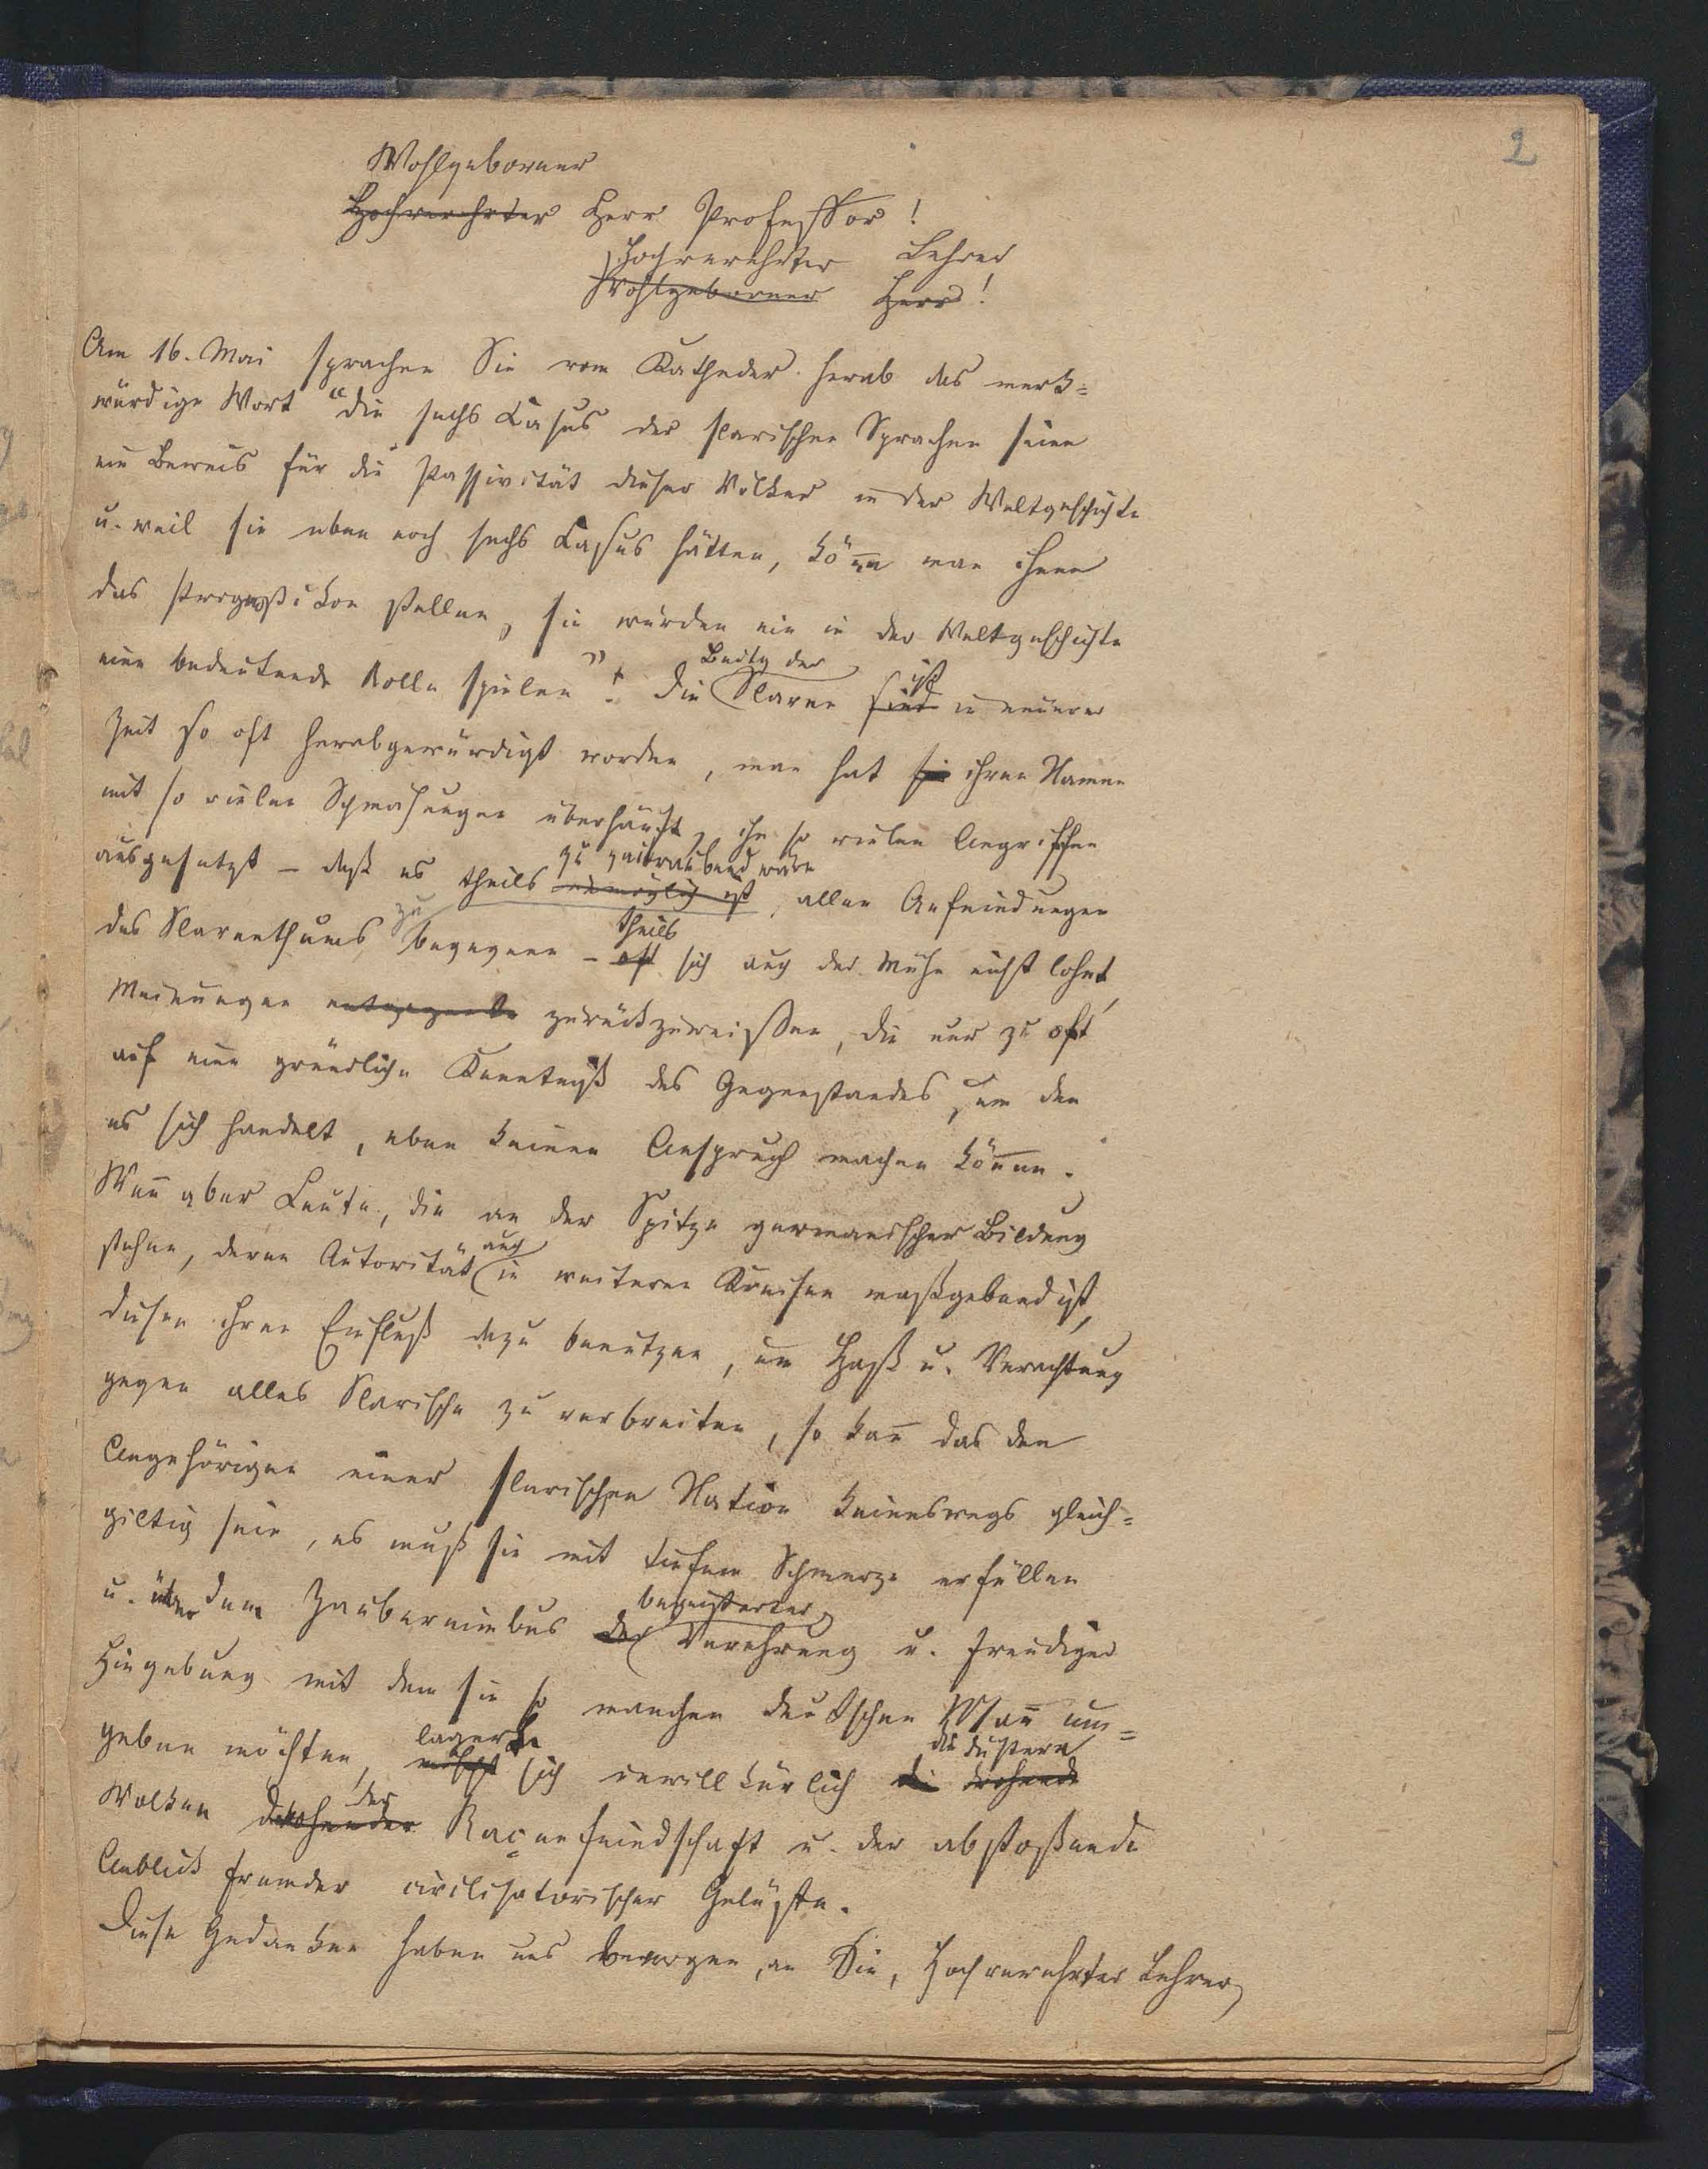 2
Wohlgeborner
Hochverehrter Herr Professor!
Hochverehrter Lehrer
Wohlgeborner Herr!
Am 16. Mai sprachen Sie vom Katheder herab das merk=
würdige Wort "die sechs Casus der slavischen Sprachen seien
ein Beweis für die Passivität dieser Völker in der Weltgeschichte
u. weil sie eben noch sechs Casus hätten, köñe man ihnen
das Prognostikon stellen, sie würden nie in der Weltgeschichte
eine bedeutende Rolle spielen"! Die Bedtg der Slaven sind ist in neuerer
Zeit so oft herabgewürdigt worden, man hat sie ihren Namen
mit so vielen Schmähungen überhäuft, ihn so vielen Angriffen
ausgesetzt – daß es theils unmöglich ist zu zeitraubend wäre, allen Anfeindungen
des Slaventhums zu begegnen – oft theils sich auch der Mühe nicht lohnt,
Meinungen zurückzuweisen, die nur zu oft
auf eine gründliche Kenntniß des Gegenstandes, um den
es sich handelt, eben keinen Anspruch machen köñen.
Weñ aber Leute, die an der Spitze germanischer Bildung
stehen, deren Autorität auch in weiteren Kreisen maßgebend ist,
diesen ihren Einfluß dazu benutzen, um Haß u. Verachtung
gegen alles Slavische zu verbreiten, so kañ das den
Angehörigen einer slavischen Nation keineswegs gleich=
giltig sein, es muß sie mit tiefem Schmerze erfüllen
u. über dem Zaubernimbus der begeisterter Verehrung u. freudiger
Hingebung mit dem sie so manchen deutschen Mañ um=
geben möchten, lagern sich unwillkürlich die drohende die düstern
Wolken drohender der Raçenfeindschaft u. der abstoßende
Anblick fremder civilisatorischer Gelüste.
Diese Gedanken haben uns bewogen, an Sie, Hochverehrter Lehrer